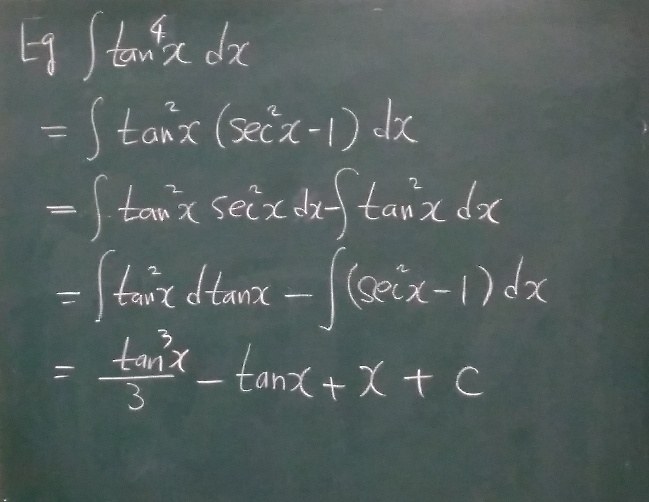 Eg ∫ tan⁴x dx
= ∫ tan²x (sec²x-1) dx
= ∫ tan²x sec²x dx - ∫ tan²x dx
= ∫ tan²x dtanx - ∫ (sec²x-1) dx
= tan³x/3 - tanx + x + c